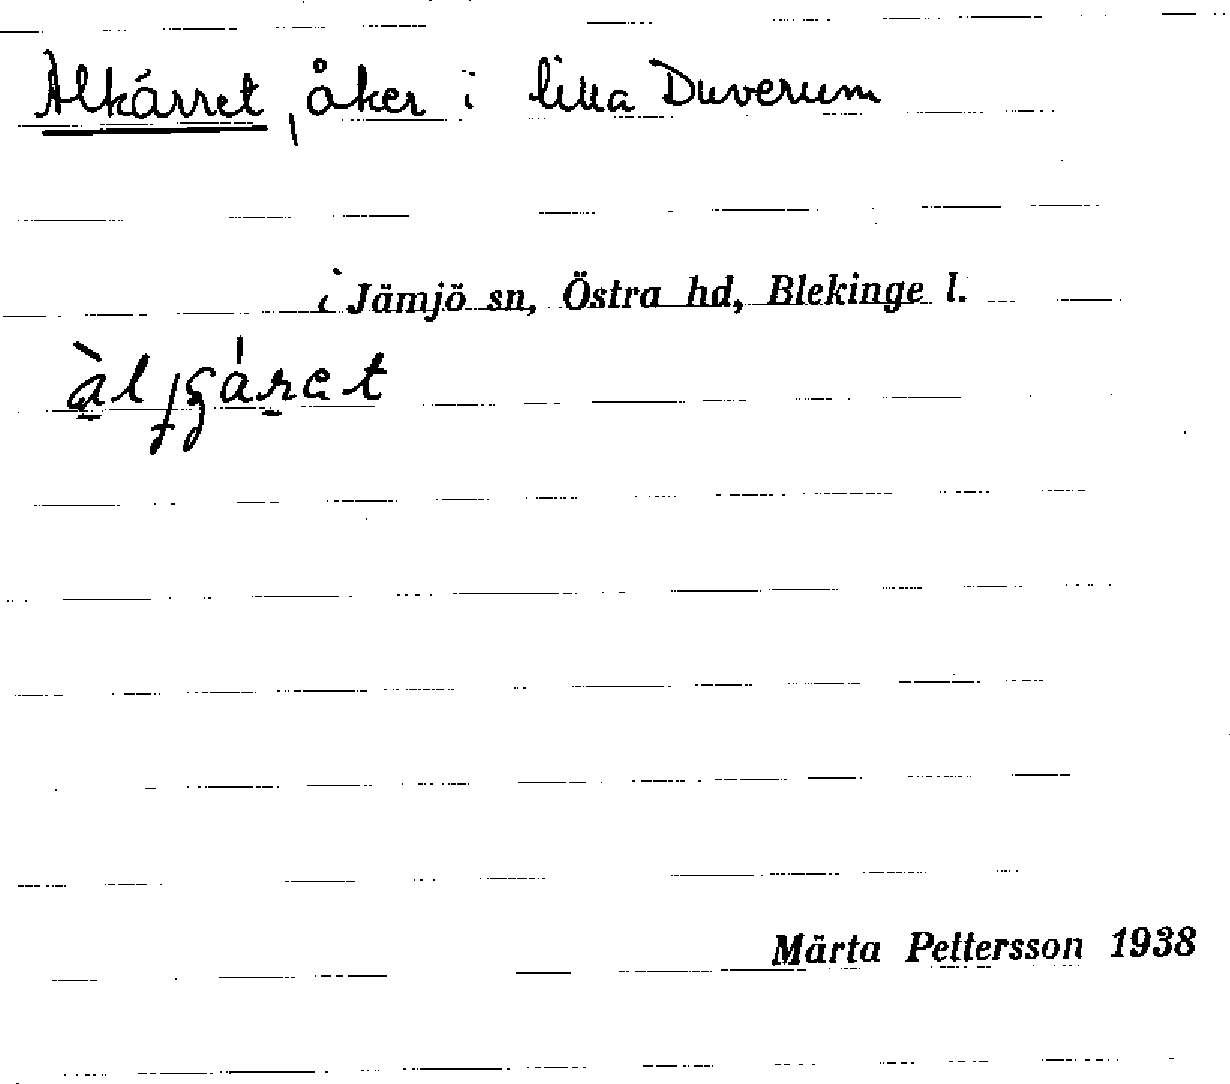 Alkärret, åker i lilla Duverum
i Jämjö sn, Östra hd, Blekinge l.
Märta Pettersson 1938